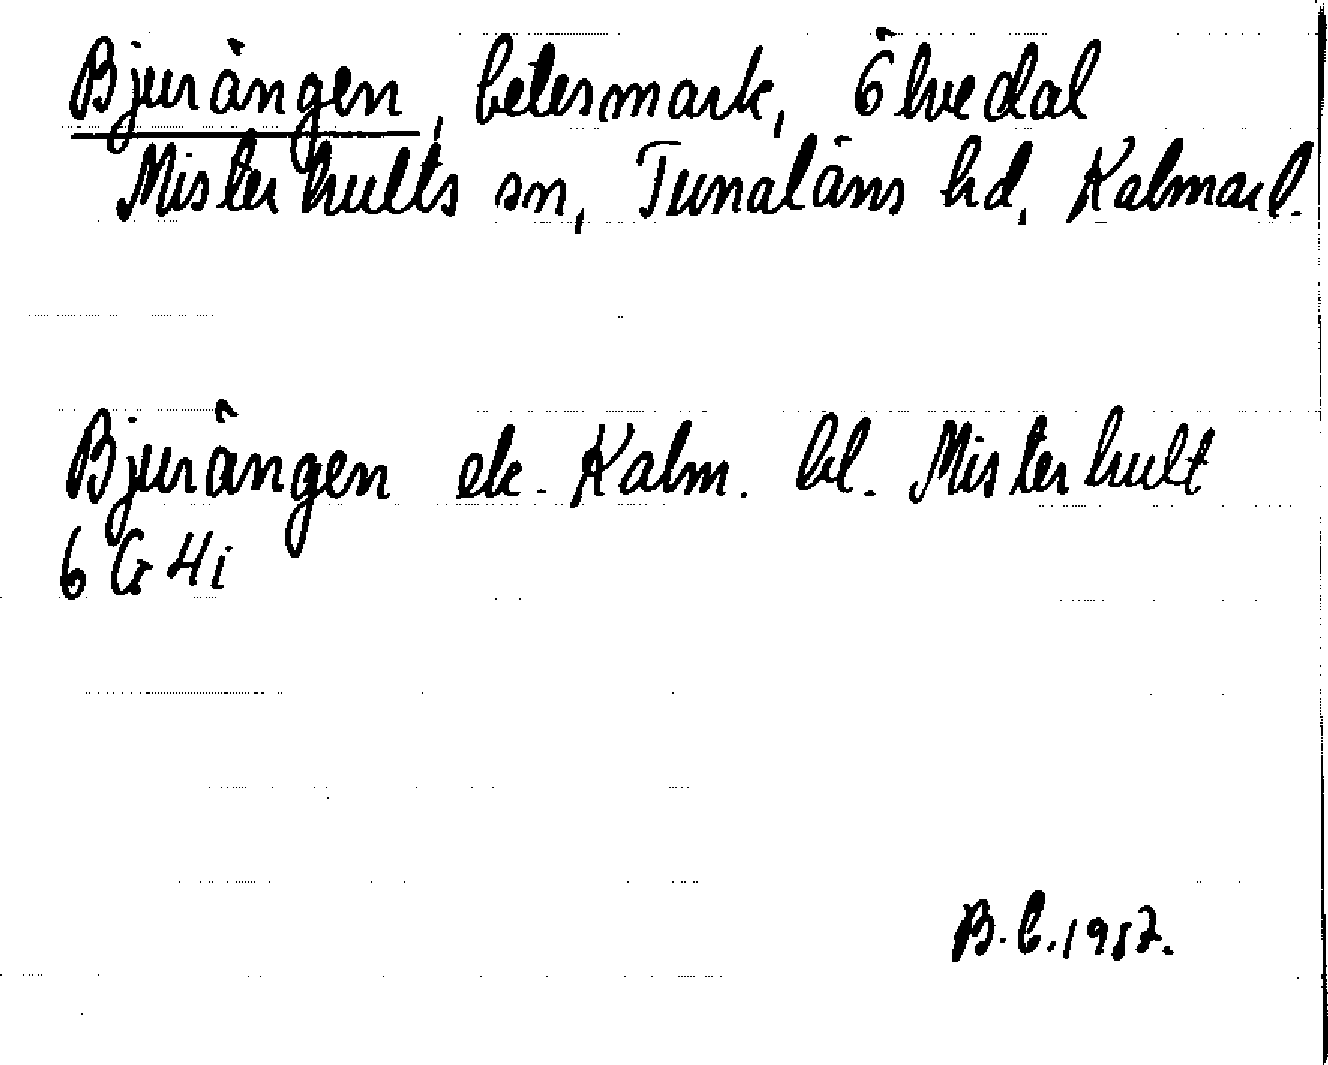 Bjurängen, betesmark, Ölvedal
Misterhults sn, Tunaläns hd, Kalmar l.
Bjurängen ek. Kalm. bl. Misterhult
6 G 4i